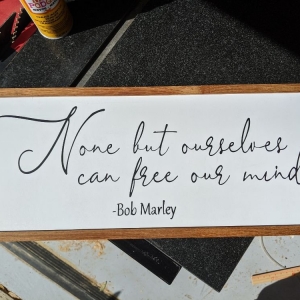 None but ourselves
can free our mind
-Bob Marley